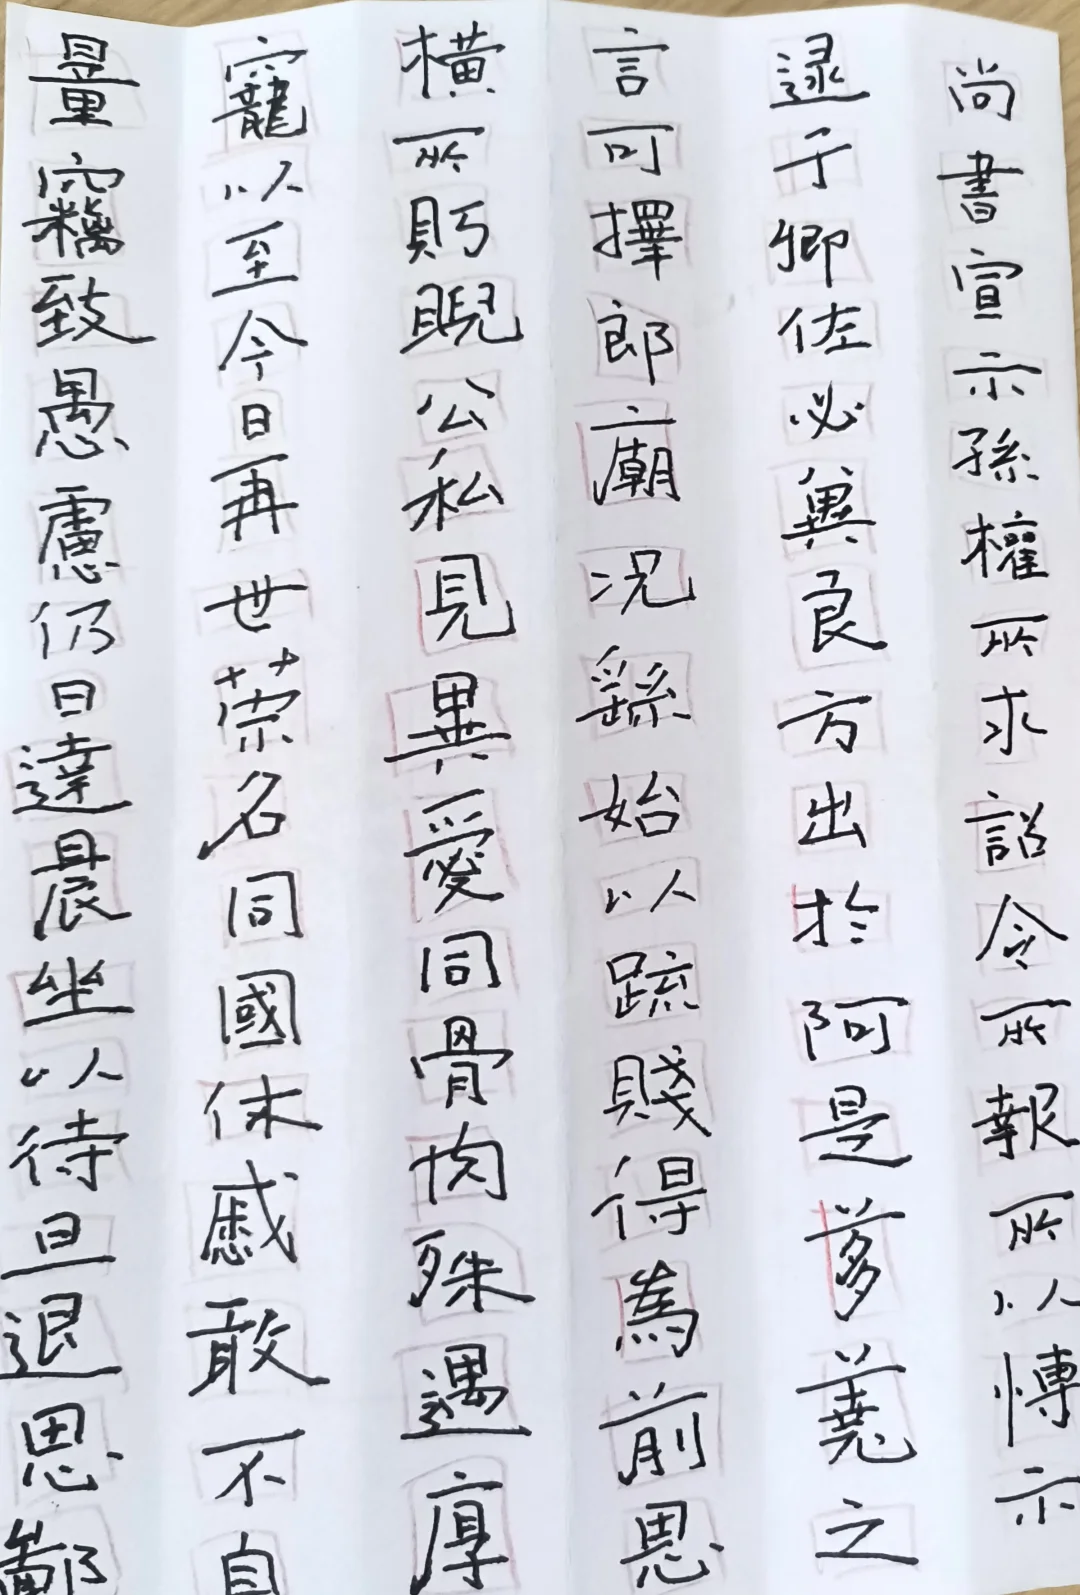 尚書宣示孫權所求詔令所報所以博示
逮于卿佐必異良方出於阿是芻蕘之
言可擇郎廟况繇始以疏賤得為前恩
橫所眄睨公私見異愛同骨肉殊遇厚
寵以至今日再世荣名同國休慼敢不自
量竊致愚慮仍日達晨坐以待旦退思鄙